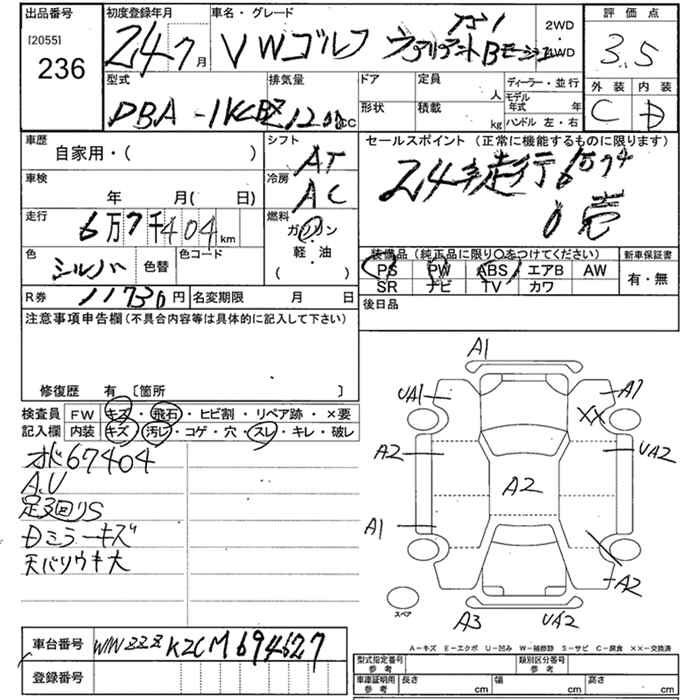 出品番号 初度登録年月 車名・グレード 評価点
[2055] 236 24 7月 VWゴルフ ヴァリアント 2WD・4WD 3.5
外装 内装
C D
型式 排気量 ドア 定員 人 ディーラー・並行
DBA- 1200cc 形状 積載 kg モデル年式 年
ハンドル 左・右
車歴 シフト セールスポイント (正常に機能するものに限ります)
自家用・( ) AT 24年走行6万7千
車検 年 月( 日) 冷房 AC
走行 6万7千404km 燃料 ガソリン・軽油( )
装備品(純正品に限り○をつけてください) 新車保証書
色 シルバー 色替 色コード PS PW ABS エアB AW 有・無
SR ナビ TV カワ
R券 11730円 名変期限 月 日 後日品
注意事項申告欄(不具合内容等は具体的に記入して下さい)
修復歴 有 [箇所 ]
検査員 FW キズ・飛石・ヒビ割・リペア跡・×要
記入欄 内装 キズ・汚レ・コゲ・穴・スレ・キレ・破レ
67404
A.U
足廻りS
Dミラーキズ
天バリウキ大
A1
UA1 A1
XX
A2 UA2
A2
A1
A2
スペア
A3 UA2
A−キズ E−エクボ U−凹み W−補修跡 S−サビ C−腐食 ××−交換済
車台番号 WVWZZZ 694627
登録番号
型式指定番号 参考 類別区分番号 参考
車庫証明用 参考 長さ cm 幅 cm 高さ cm